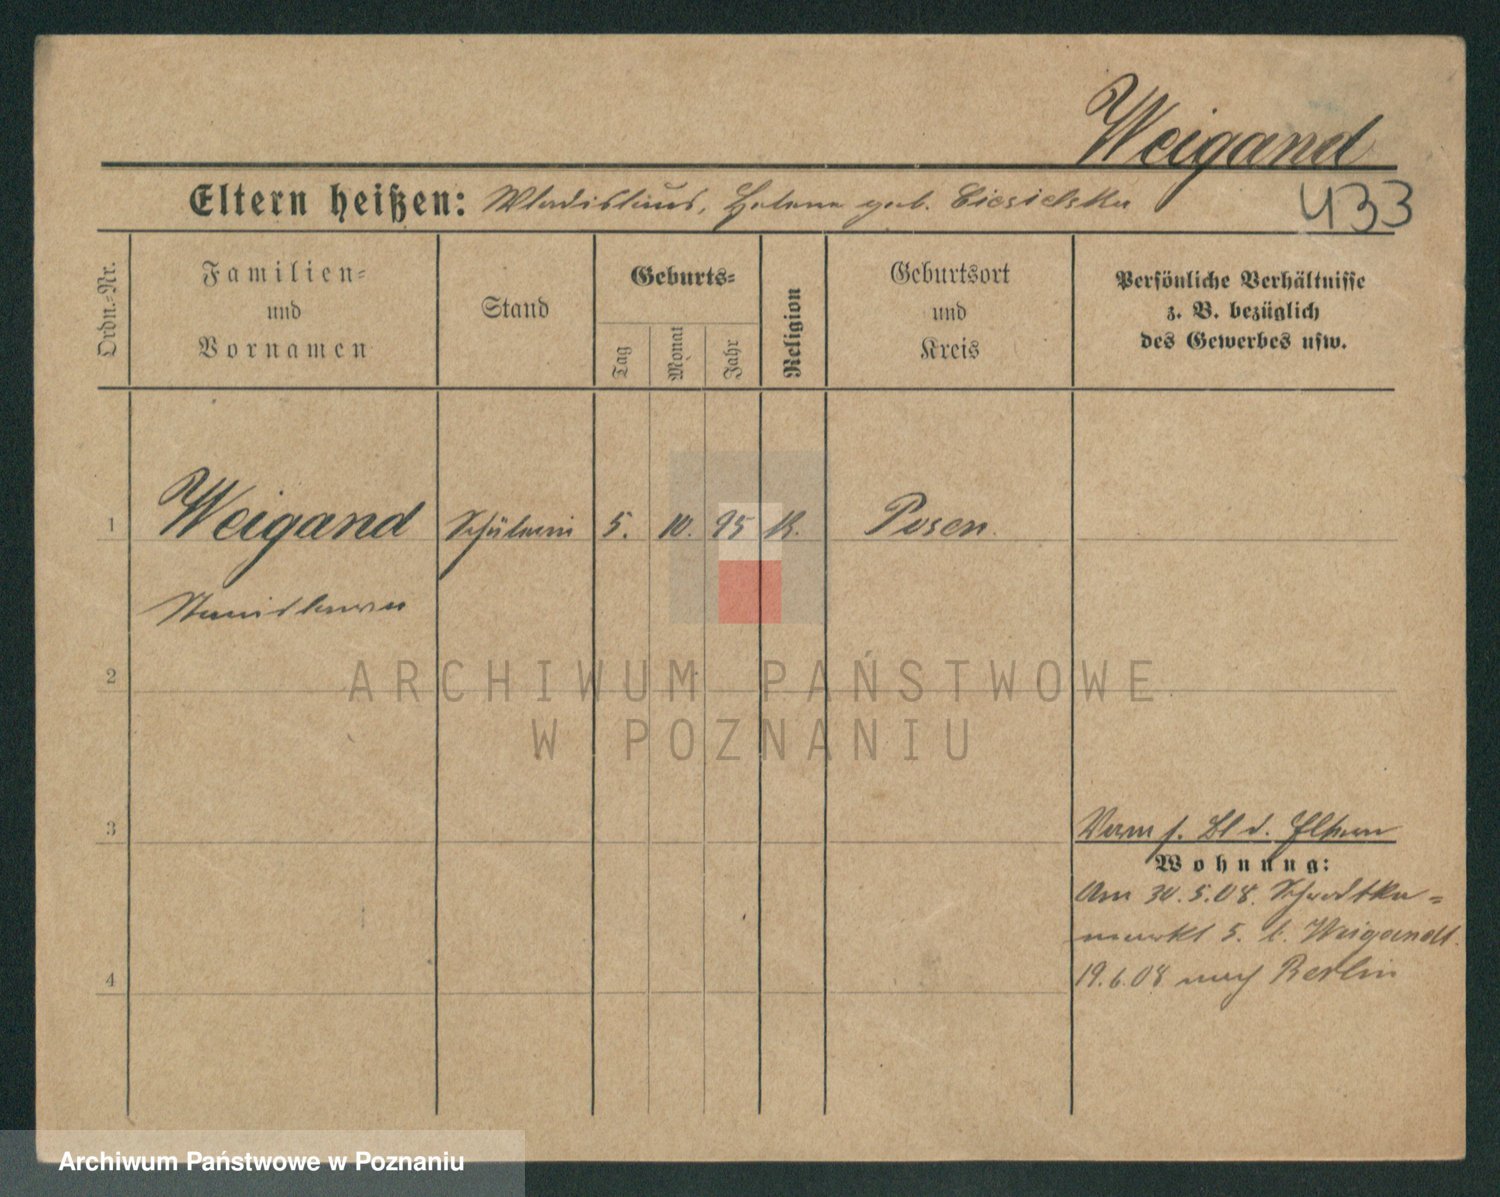 Weigand
433
Eltern heißen: Wladislaus, Helene geb. Ciesielska
Ordn.-Nr.
Familien-
und
Vornamen
Stand
Geburts-
Tag
Monat
Jahr
Religion
Geburtsort
und
Kreis
Persönliche Verhältnisse
z. B. bezüglich
des Gewerbes usw.
1
Weigand
Schülerin
5.
10.
95
K.
Posen.
Stanislawa
ARCHIWUM PAŃSTWOWE
W POZNANIU
2
3
4
Verm s. Bl d. Eltern
Wohnung:
Am 30.5.08. Schrodka=
markt 5. b. Weigandt.
19.6.08 nach Berlin
Archiwum Państwowe w Poznaniu